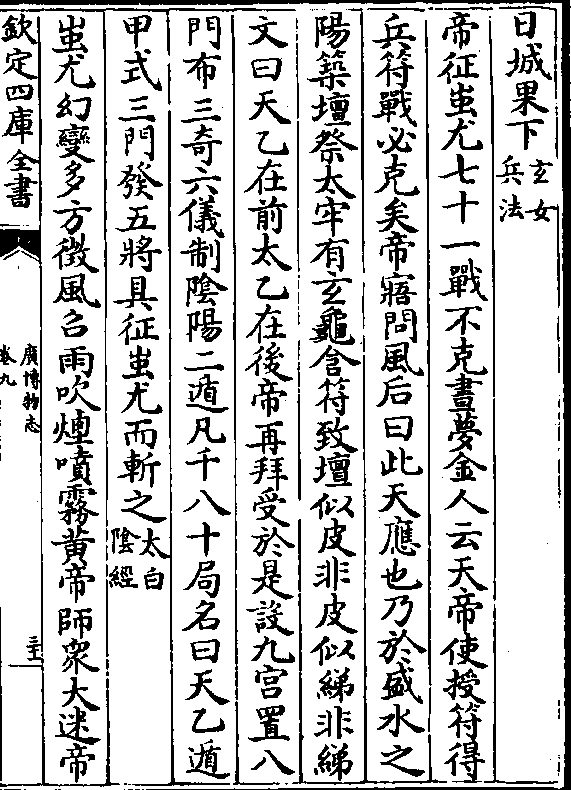 日城果下玄女兵法
帝征蚩尤七十一戰不克晝夢金人云天帝使授符得
兵符戰必克矣帝寤問風后曰此天應也乃於盛水之
陽築壇祭太牢有玄龜含符致壇似皮非皮似綈非綈
文曰天乙在前太乙在後帝再拜受於是設九宫置八
門布三奇六儀制陰陽二遁凡千八十局名曰天乙遁
甲式三門發五將具征蚩尤而斬之太白陰經
蚩尤幻變多方徴風召雨吹煙噴霧黃帝師衆大迷帝
欽定四庫全書
廣博物志
卷九